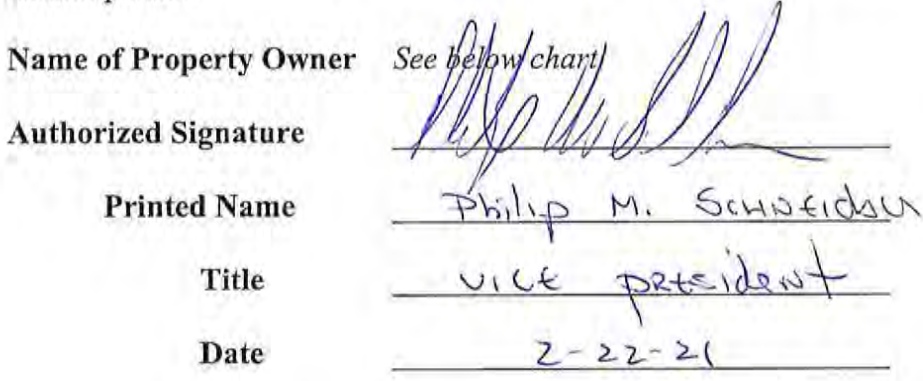 Name of Property Owner See below chart
Authorized Signature
Printed Name Philip M. Schneider
Title Vice president
Date 2-22-21